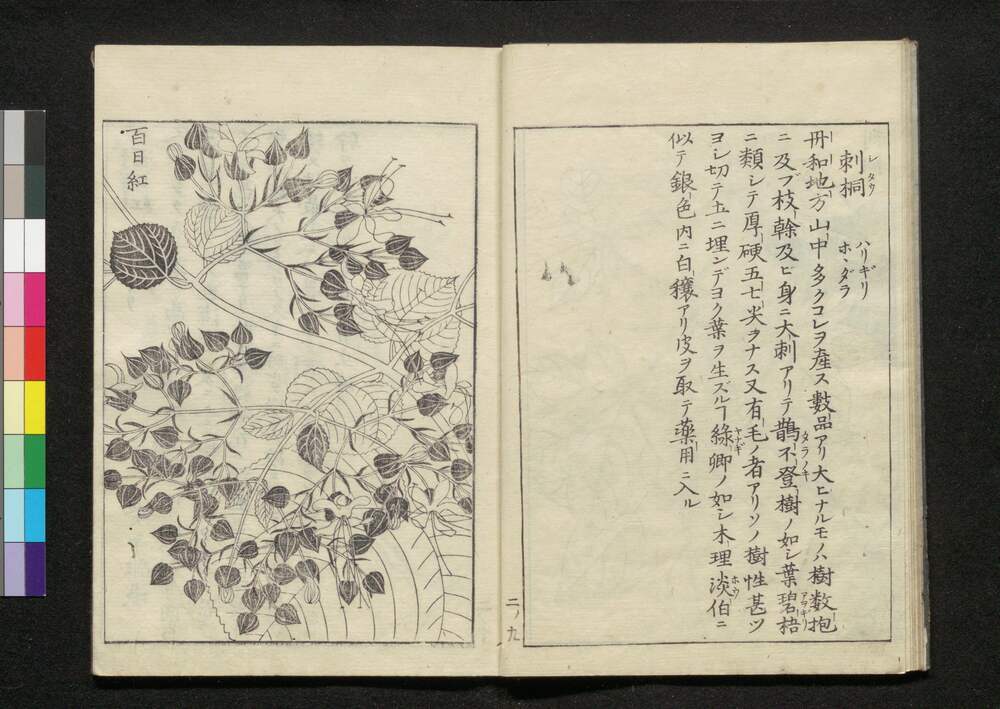 刺桐 シタウ ハリギリ ホヽダラ
丹和地方山中多クコレヲ産ス數品アリ大ヒナルモノハ樹数抱
ニ及ブ枝幹及ビ身ニ大刺アリテ鵲不登樹ノ如シ葉碧梧
ニ類シテ厚硬五七尖ヲナス又有毛ノ者アリソノ樹性甚ツ
ヨシ切テ土ニ埋ンデヨク葉ヲ生ズルヿ綠卿ノ如シ木理淡伯ニ
似テ銀色内ニ白穰アリ皮ヲ取テ藥用ニ入ル
二ノ九
百日紅